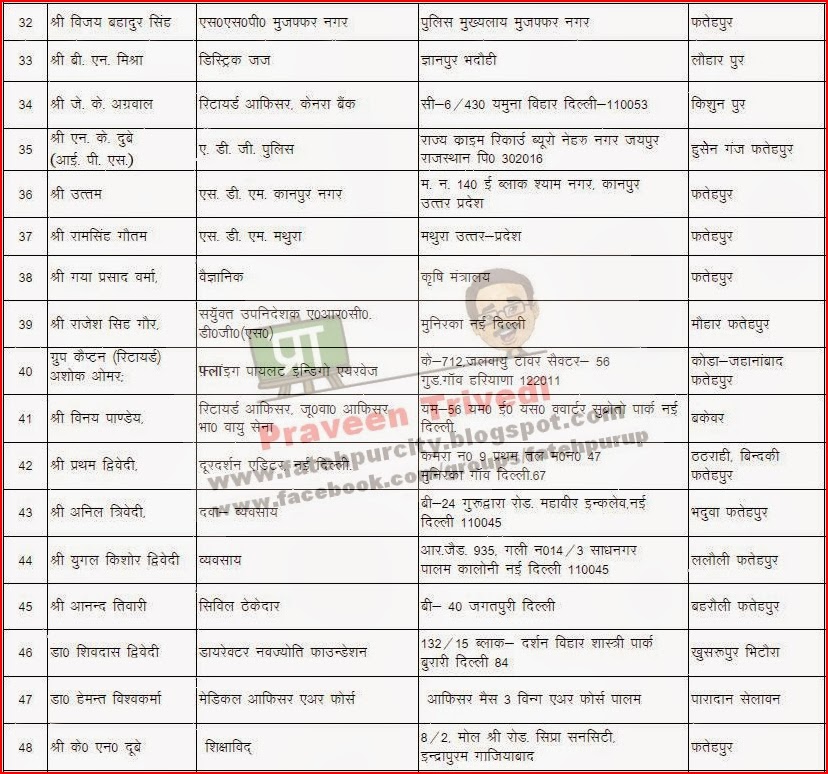 32 श्री विजय बहादुर सिंह एस0एस0पी0 मुजफ्फर नगर पुलिस मुख्यलाय मुजफ्फर नगर फतेहपुर
33 श्री बी. एन. मिश्रा डिस्ट्रिक जज ज्ञानपुर भदौही लौहार पुर
34 श्री जे. के. अग्रवाल रिटायर्ड आफिसर, केनरा बैंक सी–6/430 यमुना विहार दिल्ली–110053 किशुन पुर
35 श्री एन. के. दुबे ए. डी. जी. पुलिस राज्य क्राइम रिकार्ड ब्यूरो नेहरु नगर जयपुर हुसेन गंज फतेहपुर
(आई. पी. एस.) राजस्थान पि0 302016
36 श्री उत्तम एस. डी. एम. कानपुर नगर म. न. 140 ई ब्लाक श्याम नगर, कानपुर फतेहपुर
उत्तर प्रदेश
37 श्री रामसिंह गौतम एस. डी. एम. मथुरा मथुरा उत्तर–प्रदेश फतेहपुर
38 श्री गया प्रसाद वर्मा, वैज्ञानिक कृषि मंत्रालय फतेहपुर
39 श्री राजेश सिह गौर, सर्युक्त उपनिदेशक ए0आर0सी0. मुनिरका नई दिल्ली मौहार फतेहपुर
डी0जी0(एस0)
40 ग्रुप कैप्टन (रिटायर्ड) फ्लाइग पायलट इन्डिगो एयरवेज के–712,जलवायु टावर सैक्टर– 56 कोडा–जहानांबाद
अशोक ओमर: गुड.गाँव हरियाणा 122011 फतेहपुर
41 श्री विनय पाण्डेय, रिटायर्ड आफिसर, जू0वा0 आफिसर यम–56 यम0 ई0 यस0 क्वार्टर सुब्रोतो पार्क नई बकेवर
भा0 वायु सेना दिल्ली
42 श्री प्रथम द्विवेदी, दूरदर्शन एडिटर, नई दिल्ली. कमरा न0 9 प्रथम तल म0न0 47 ठठराही, बिन्दकी
मुनिरका गाँव दिल्ली.67 फतेहपुर
43 श्री अनिल त्रिवेदी, दवा– ब्यवसाय बी–24 गुरूद्वारा रोड. महावीर इन्कलेव,नई भदुवा फतेहपुर
दिल्ली 110045
44 श्री युगल किशोर द्विवेदी व्यवसाय आर.जैड. 935, गली न014/3 साधनगर ललौली फतेहपुर
पालम कालोनी नई दिल्ली 110045
45 श्री आनन्द तिवारी सिविल ठेकेदार बी– 40 जगतपुरी दिल्ली बहरौली फतेहपुर
46 डा0 शिवदास द्विवेदी डायरेक्टर नवज्योति फाउन्डेशन 132/15 ब्लाक– दर्शन विहार शास्त्री पार्क खुसरूपुर भिटौरा
बुरारी दिल्ली 84
47 डा0 हेमन्त विश्वकर्मा मेडिकल आफिसर एअर फोर्स आफिसर मैस 3 विन्ग एअर फोर्स पालम पारादान सेलावन
48 श्री के0 एन0 दूबे शिक्षाविद् 8/2, मोल श्री रोड. सिप्रा सनसिटी, फतेहपुर
इन्द्रापुरम गाजियाबाद
प्रा
Praveen Trivedi
www.fatehpurcity.blogspot.com
www.facebook.com/groups/fatehpurup